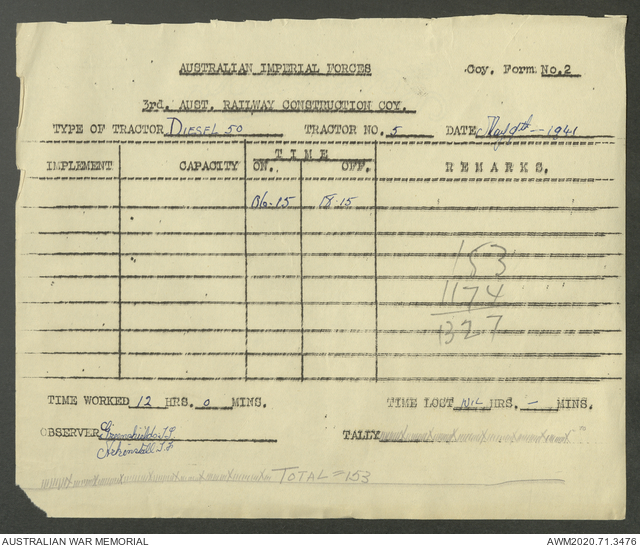 AUSTRALIAN IMPERIAL FORCES
Coy. Form No.2
3rd. AUST. RAILWAY CONSTRUCTION COY.
TYPE OF TRACTOR DIESEL 50 TRACTOR NO. 5 DATE 1941
TIME
IMPLEMENT CAPACITY ON. OFF. REMARKS.
06.15 18.15
153
1174
1327
TIME WORKED 12 HRS. 0 MINS. TIME LOST NIL HRS. - MINS.
OBSERVER TALLY
TOTAL = 153
AUSTRALIAN WAR MEMORIAL AWM2020.71.3476